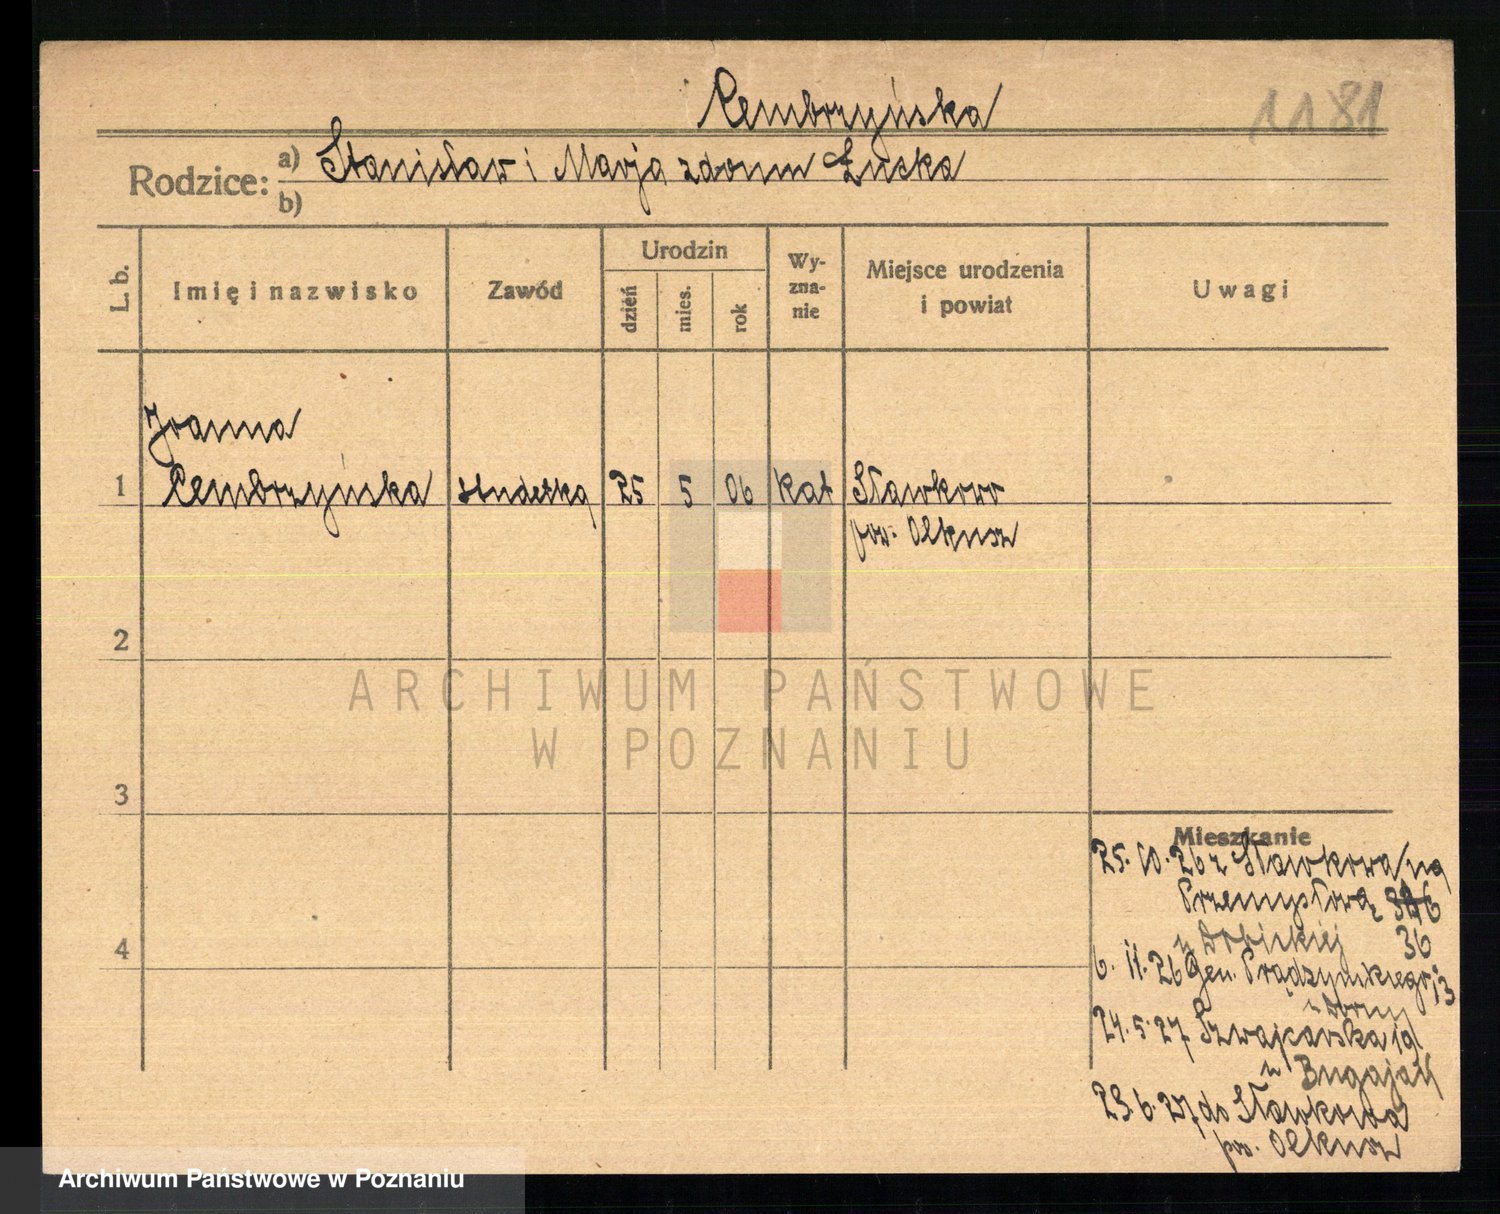 Cembrzyńska
1181
Rodzice: a) Stanisław i Marja z domu Łuska
b)
L. b.
Imię i nazwisko
Zawód
Urodzin
dzień
mies.
rok
Wy-
zna-
nie
Miejsce urodzenia
i powiat
Uwagi
Joanna
1 Cembrzyńska studetką 25 5 06 kat Sławkowo
pow. Olkusz
2
3
4
Mieszkanie
25. 10. 26 z Sławkowa na
Przemysłową
u 36
6. 11. 26 Gen. Prądzyńskiego 13
24. 5. 27 Szwajcarska 19
u Bugajach
23. 6. 27 do Sławkowa
pow. Olkusz
ARCHIWUM PAŃSTWOWE
W POZNANIU
Archiwum Państwowe w Poznaniu